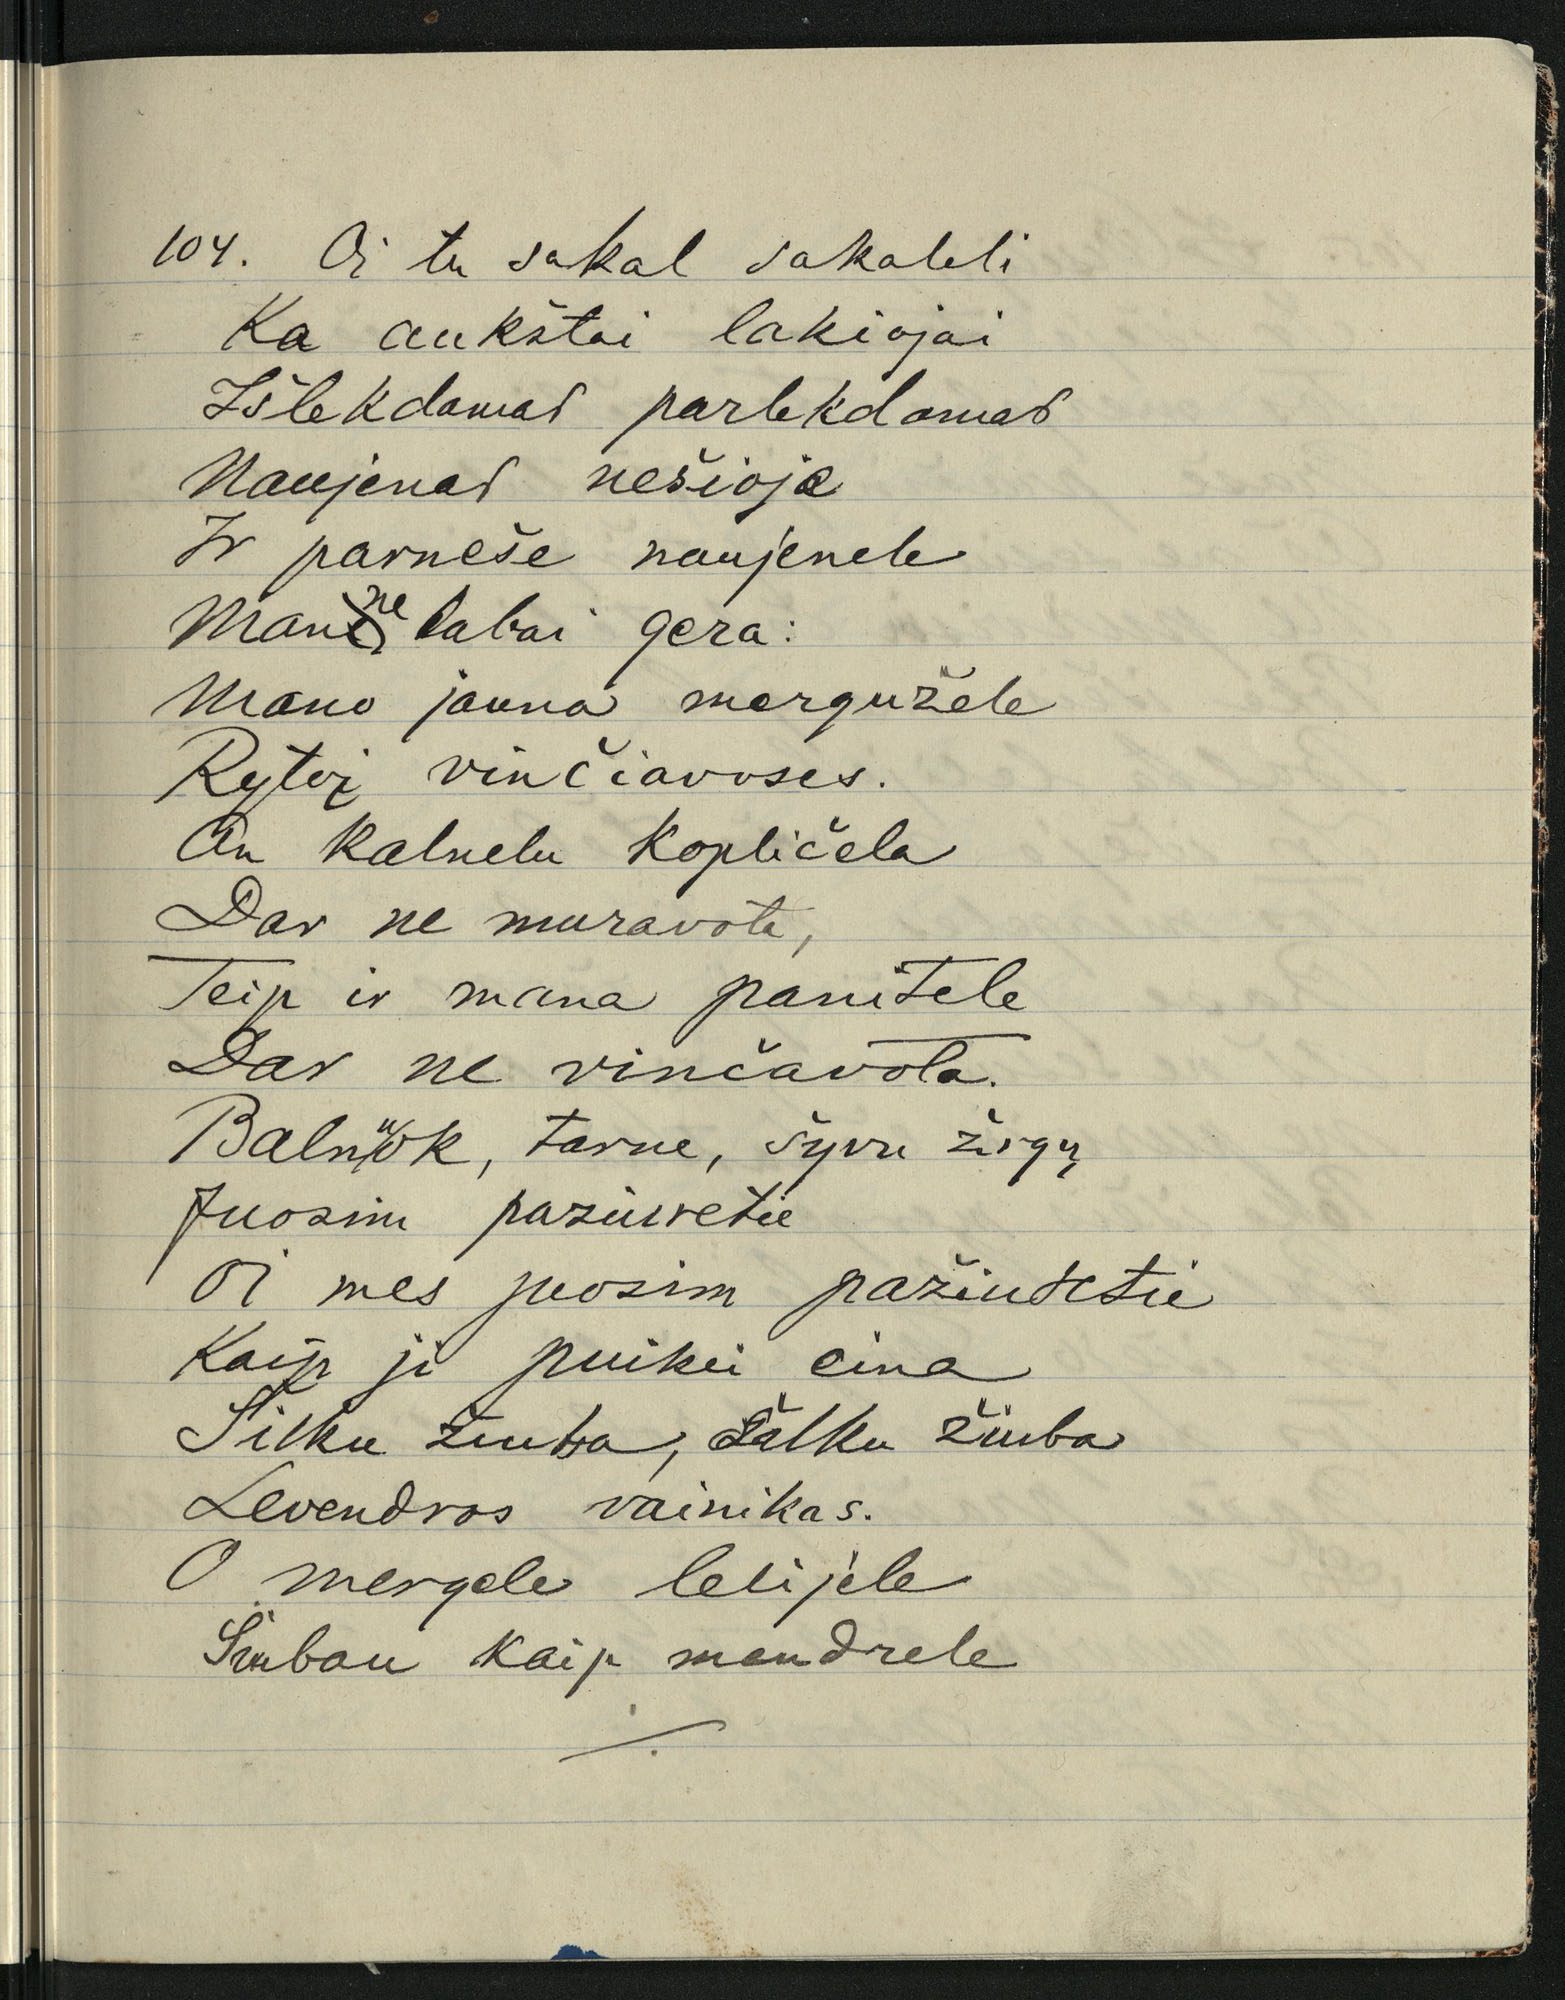 104. Oi tu sakal sakaleli
Ka aukštai lakiojai
Išlekdamas parlekdamas
Naujenas nešioja
Ir parneše naujenele
Man ne labai gera:
Mano jauna mergužele
Rytoj vinčiavoses.
An kalnelu kopličela
Dar ne muravota,
Teip ir mana panitele
Dar ne vinčavota.
Balnuok, tarne, šyvu žirgų
Juosim paziuretie
Oi mes juosim pažiuretie
Kaip ji puikei eina
Šilku žiuba, šilku žiuba
Levendros vainikas.
O mergele lelijele
Šiubau kaip mandrele